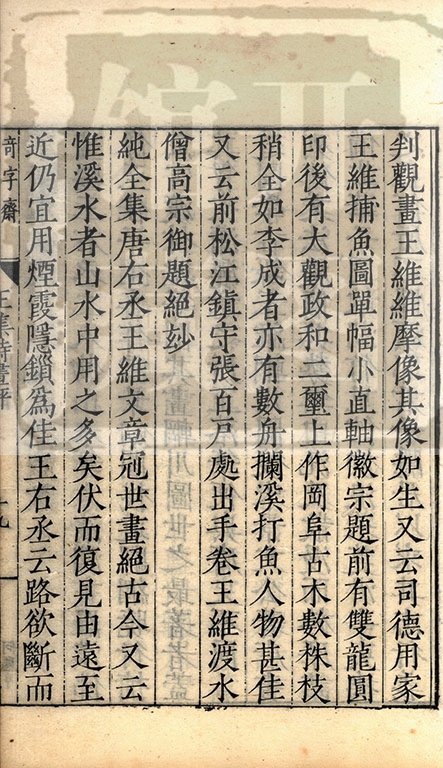 判觀畫王維維摩像其像如生又云司德用家
王維捕魚圖單幅小直軸徽宗題前有雙龍圓
印後有大觀政和二璽上作岡阜古木數株枝
稍全如李成者亦有數舟攔溪打魚人物甚佳
又云前松江鎮守張百戸處出手卷王維渡水
僧高宗御題絕玅
純全集唐右丞王維文章冠世畫絕古今又云
惟溪水者山水中用之多矣伏而復見由遠至
近仍宜用煙霞隱鎖為佳王右丞云路欲斷而
奇字齋